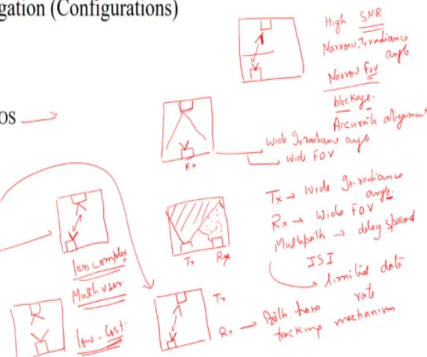 gation (Configurations)
High SNR
Narrow Irradiance angle
Narrow FOV
blockage.
Accurate alignment
OS
Rx
wide Irradiance angle
wide FOV
Tx → Wide Irradiance angle.
Rx → Wide FOV
Multipath → delay spread
ISI
limited data rate
Tx Rx
less complex
Multiuser
low-cost
Tx
Rx → Both have tracking mechanism